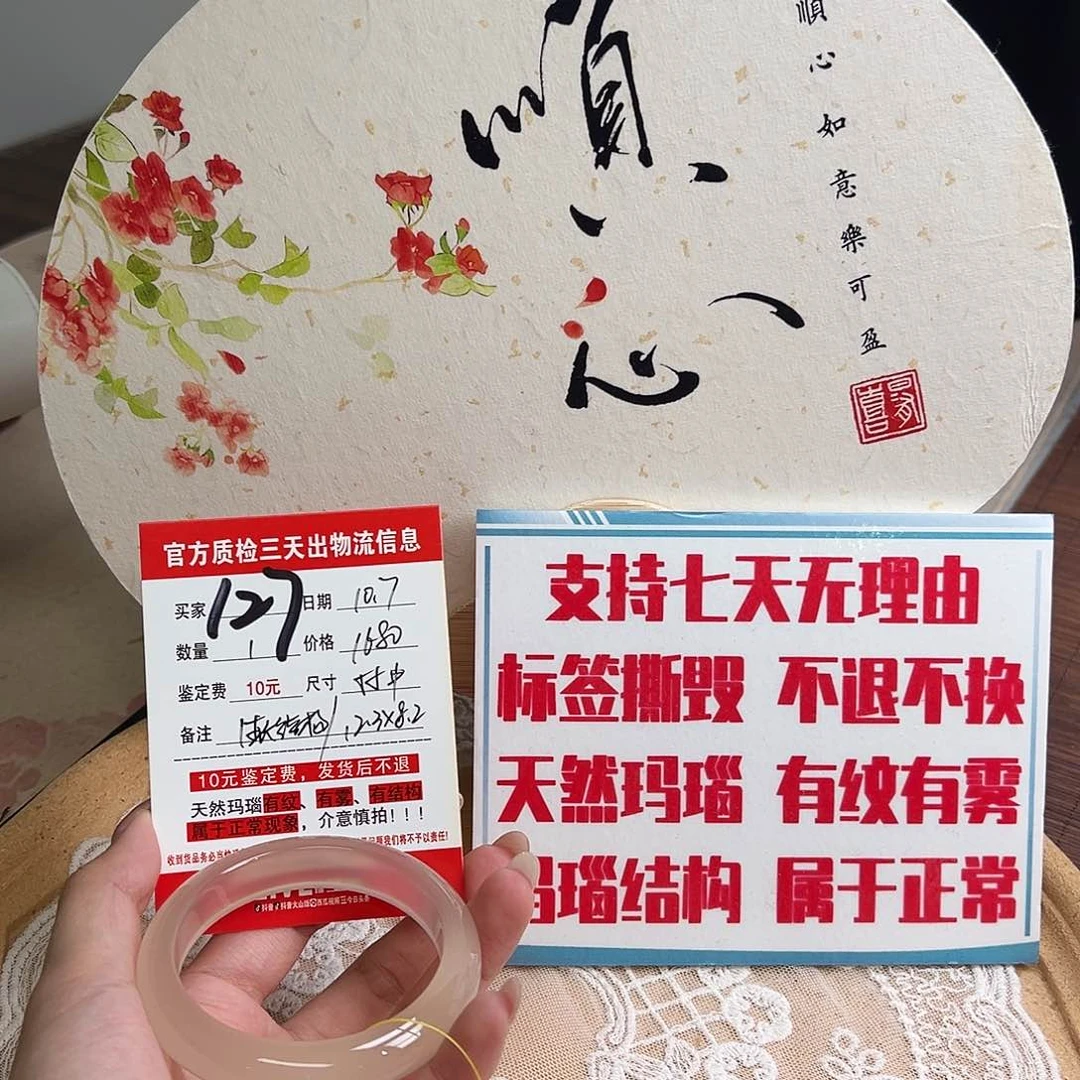 順心
順心如意樂可盈
官方质检三天出物流信息
买家 127 日期 10.7
数量 1 价格 1680
鉴定费 10元 尺寸
备注 12.3×8.2
10元鉴定费，发货后不退
天然玛瑙有纹、有雾、有结构
属于正常现象，介意慎拍！！！
收到货品务必当
我们将不予以责任!
支持七天无理由
标签撕毁 不退不换
天然玛瑙 有纹有雾
玛瑙结构 属于正常